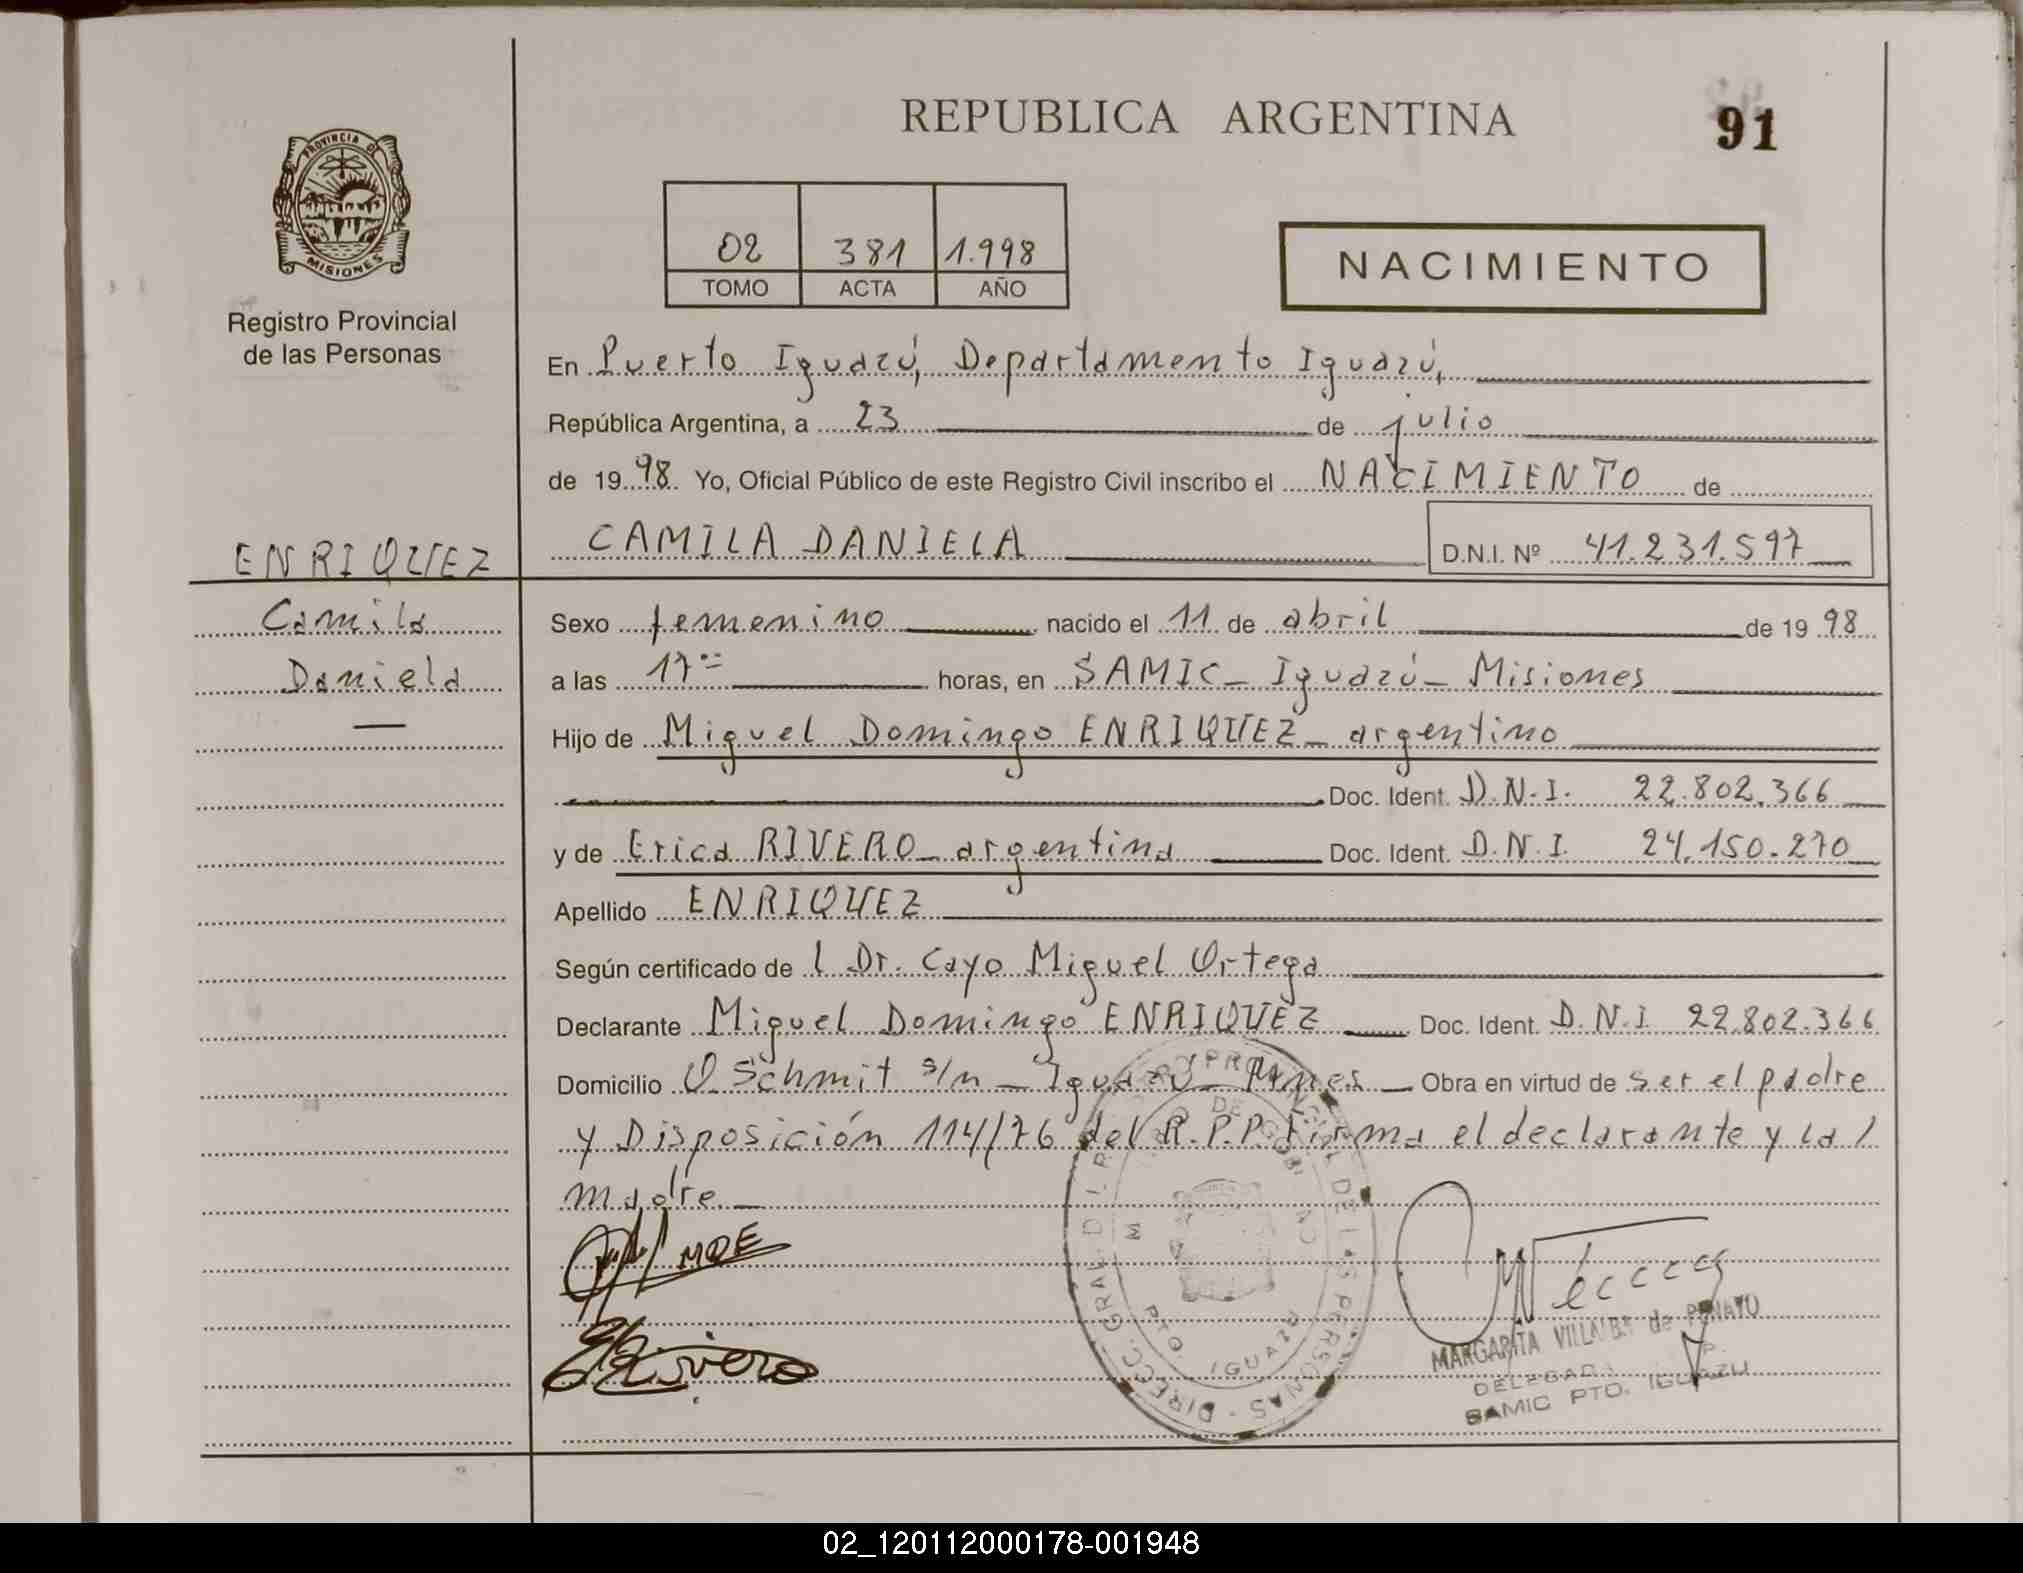 REPUBLICA ARGENTINA
91
PROVINCIA DE
MISIONES
Registro Provincial
de las Personas
02 381 1.998
TOMO ACTA AÑO
NACIMIENTO
En Puerto Iguazú, Departamento Iguazú,
República Argentina, a 23 de julio
de 1998 Yo, Oficial Público de este Registro Civil inscribo el NACIMIENTO de
CAMILA DANIELA D.N.I. Nº 41.231.597
ENRIQUEZ
Camila
Daniela
Sexo femenino nacido el 11 de abril de 1998
a las 17 horas, en SAMIC - Iguazú - Misiones
Hijo de Miguel Domingo ENRIQUEZ - argentino
Doc. Ident. D.N.I. 22.802.366
y de Erica RIVERO - argentina Doc. Ident. D.N.I. 24.150.270
Apellido ENRIQUEZ
Según certificado de l Dr. Cayo Miguel Ortega
Declarante Miguel Domingo ENRIQUEZ Doc. Ident. D.N.I 22.802.366
Domicilio O Schmit s/n - Iguazú - Mnes - Obra en virtud de ser el padre
y Disposición 114/76 del R.P.P. Firma el declarante y la /
madre.
MDE
ERivero
DIREC. GRAL. DEL REGISTRO PROVINCIAL DE LAS PERSONAS
PTO. IGUAZU
MARGARITA VILLALBA de PENAYO
DELEGADA
SAMIC PTO. IGUAZU
02_120112000178-001948